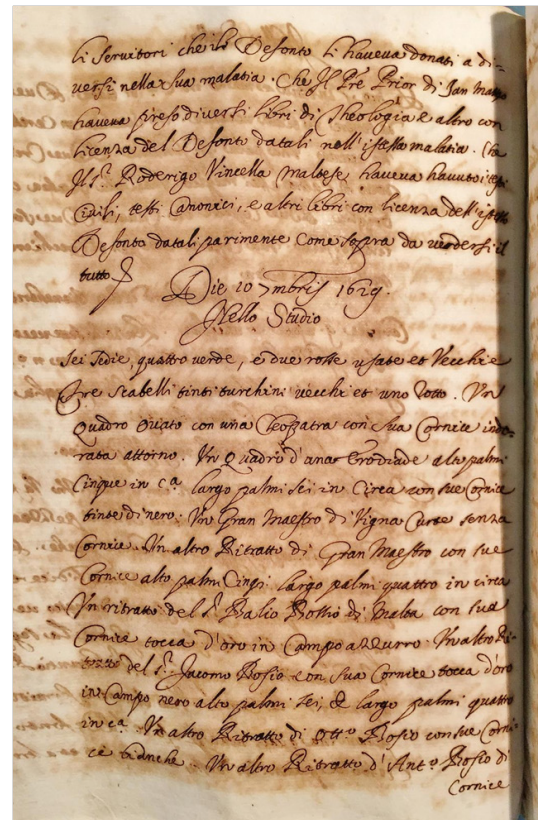 li servitori che il Defonto li haveva donati a di=
versi nella sua malatia. Che Il Pre Prior di San
haveva preso diversi libri di Theologia e altro con
licenza del Defonto datali nell'istessa malatia. Che
Il S.r Roderigo Vincella Maltese haveva havuto
Civili, testi Canonici, e altri libri con licenza dell'istesso
Defonto datali parimente come sopra da vedersi il
tutto
Die 10 7mbris 1629.
Nello Studio
Sei sedie, quattro verde, e due rosse usate et vecchie
Tre scabelli tinti turchini vecchi et uno rotto. Un
Quadro ovato con una Cleopatra con sua Cornice indo=
rata attorno. Un Quadro d'una Erodiade alto palmi
Cinque in c.a largo palmi sei in Circa con sue Cornice
tinte di nero. Un Gran Maestro di Vigna Curte senza
Cornice. Un altro Ritratto di Gran Maestro con sue
Cornice alto palmi Cinqi largo palmi quattro in circa
Un ritratto del S.r Balio Bossio di Malta con sua
Cornice tocca d'oro in Campo azzurro. Un altro Ri=
tratto del S.r Jacomo Bosio con sua Cornice tocca d'oro
in Campo nero alto palmi sei, & largo palmi quattro
in c.a Un altro Ritratto di Ott.o Bosio con sue Corni=
ce bianche. Un altro Ritratto d'Ant.o Bosio di
Cornice